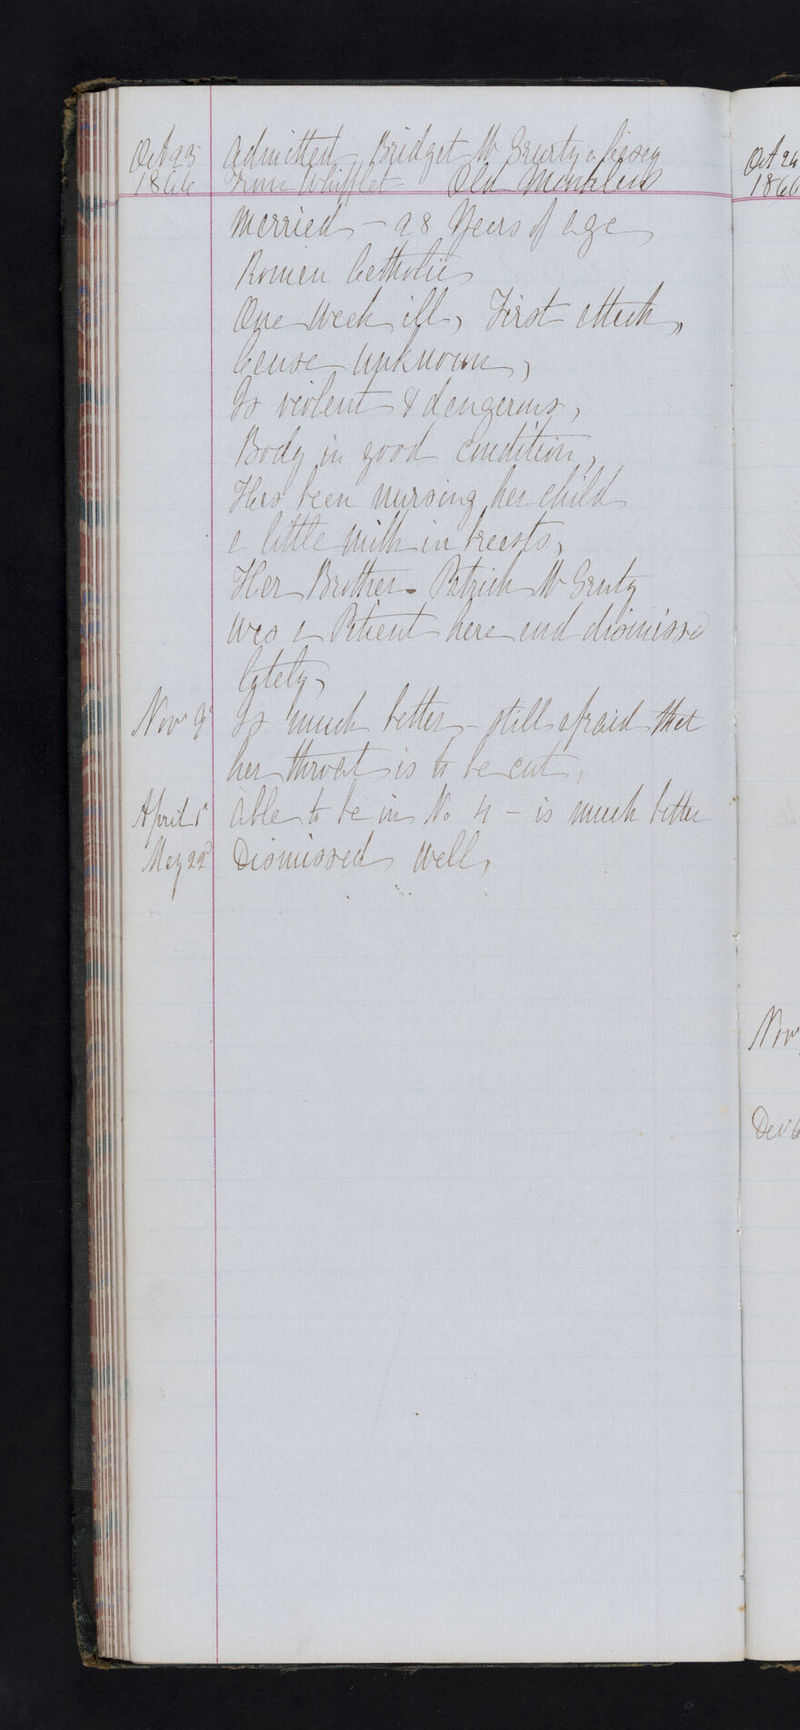 Oct 23 Admitted - Bridget Mc Grurty or Casey
1866 From Whifflet - Old Monkland
Married - 28 Years of age
Roman Catholic
One Week ill, First attack,
Cause unknown,
Is violent & dangerous,
Body in good condition,
Has been nursing her child
a little milk in breasts,
Her Brother - Patrick Mc Grurty
was a Patient here and dismissed
lately,
Nov 9 Is much better - still afraid that
her throat is to be cut,
April 1st Able to be in No 4 - is much better
May 22d Dismissed Well,
Oct 24
1866
Nov
Dec